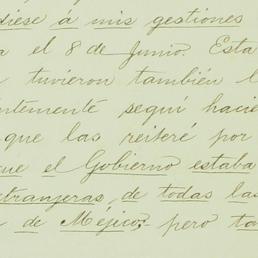 diese á mis gestiones
a el 8 de Junio. Esta
n tuvieron también l
intemente seguí hacie
que las reiteré por
que el Gobierno estaba
etranjeras, de todas las
de Méjico; pero ta